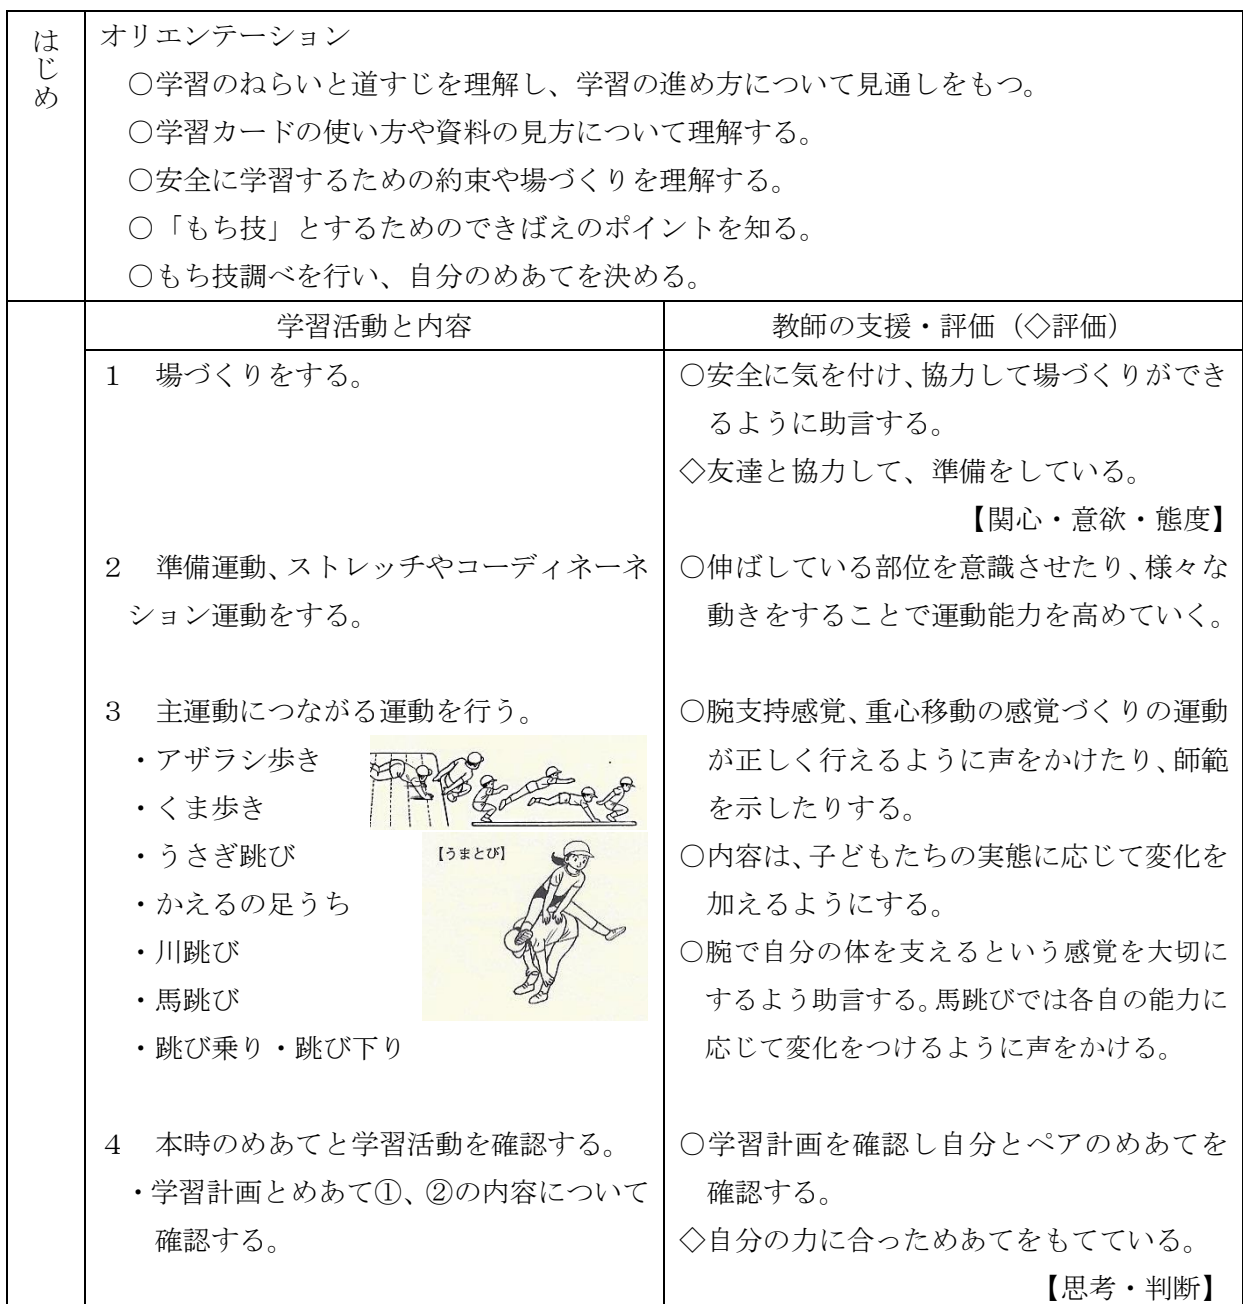 はじめ
オリエンテーション
○学習のねらいと道すじを理解し、学習の進め方について見通しをもつ。
○学習カードの使い方や資料の見方について理解する。
○安全に学習するための約束や場づくりを理解する。
○「もち技」とするためのできばえのポイントを知る。
○もち技調べを行い、自分のめあてを決める。
学習活動と内容
教師の支援・評価（◇評価）
１　場づくりをする。
○安全に気を付け、協力して場づくりができ
るように助言する。
◇友達と協力して、準備をしている。
【関心・意欲・態度】
２　準備運動、ストレッチやコーディネーネ
ション運動をする。
○伸ばしている部位を意識させたり、様々な
動きをすることで運動能力を高めていく。
３　主運動につながる運動を行う。
・アザラシ歩き
・くま歩き
・うさぎ跳び
・かえるの足うち
・川跳び
・馬跳び
・跳び乗り・跳び下り
【うまとび】
○腕支持感覚、重心移動の感覚づくりの運動
が正しく行えるように声をかけたり、師範
を示したりする。
○内容は、子どもたちの実態に応じて変化を
加えるようにする。
○腕で自分の体を支えるという感覚を大切に
するよう助言する。馬跳びでは各自の能力に
応じて変化をつけるように声をかける。
４　本時のめあてと学習活動を確認する。
・学習計画とめあて①、②の内容について
確認する。
○学習計画を確認し自分とペアのめあてを
確認する。
◇自分の力に合っためあてをもてている。
【思考・判断】